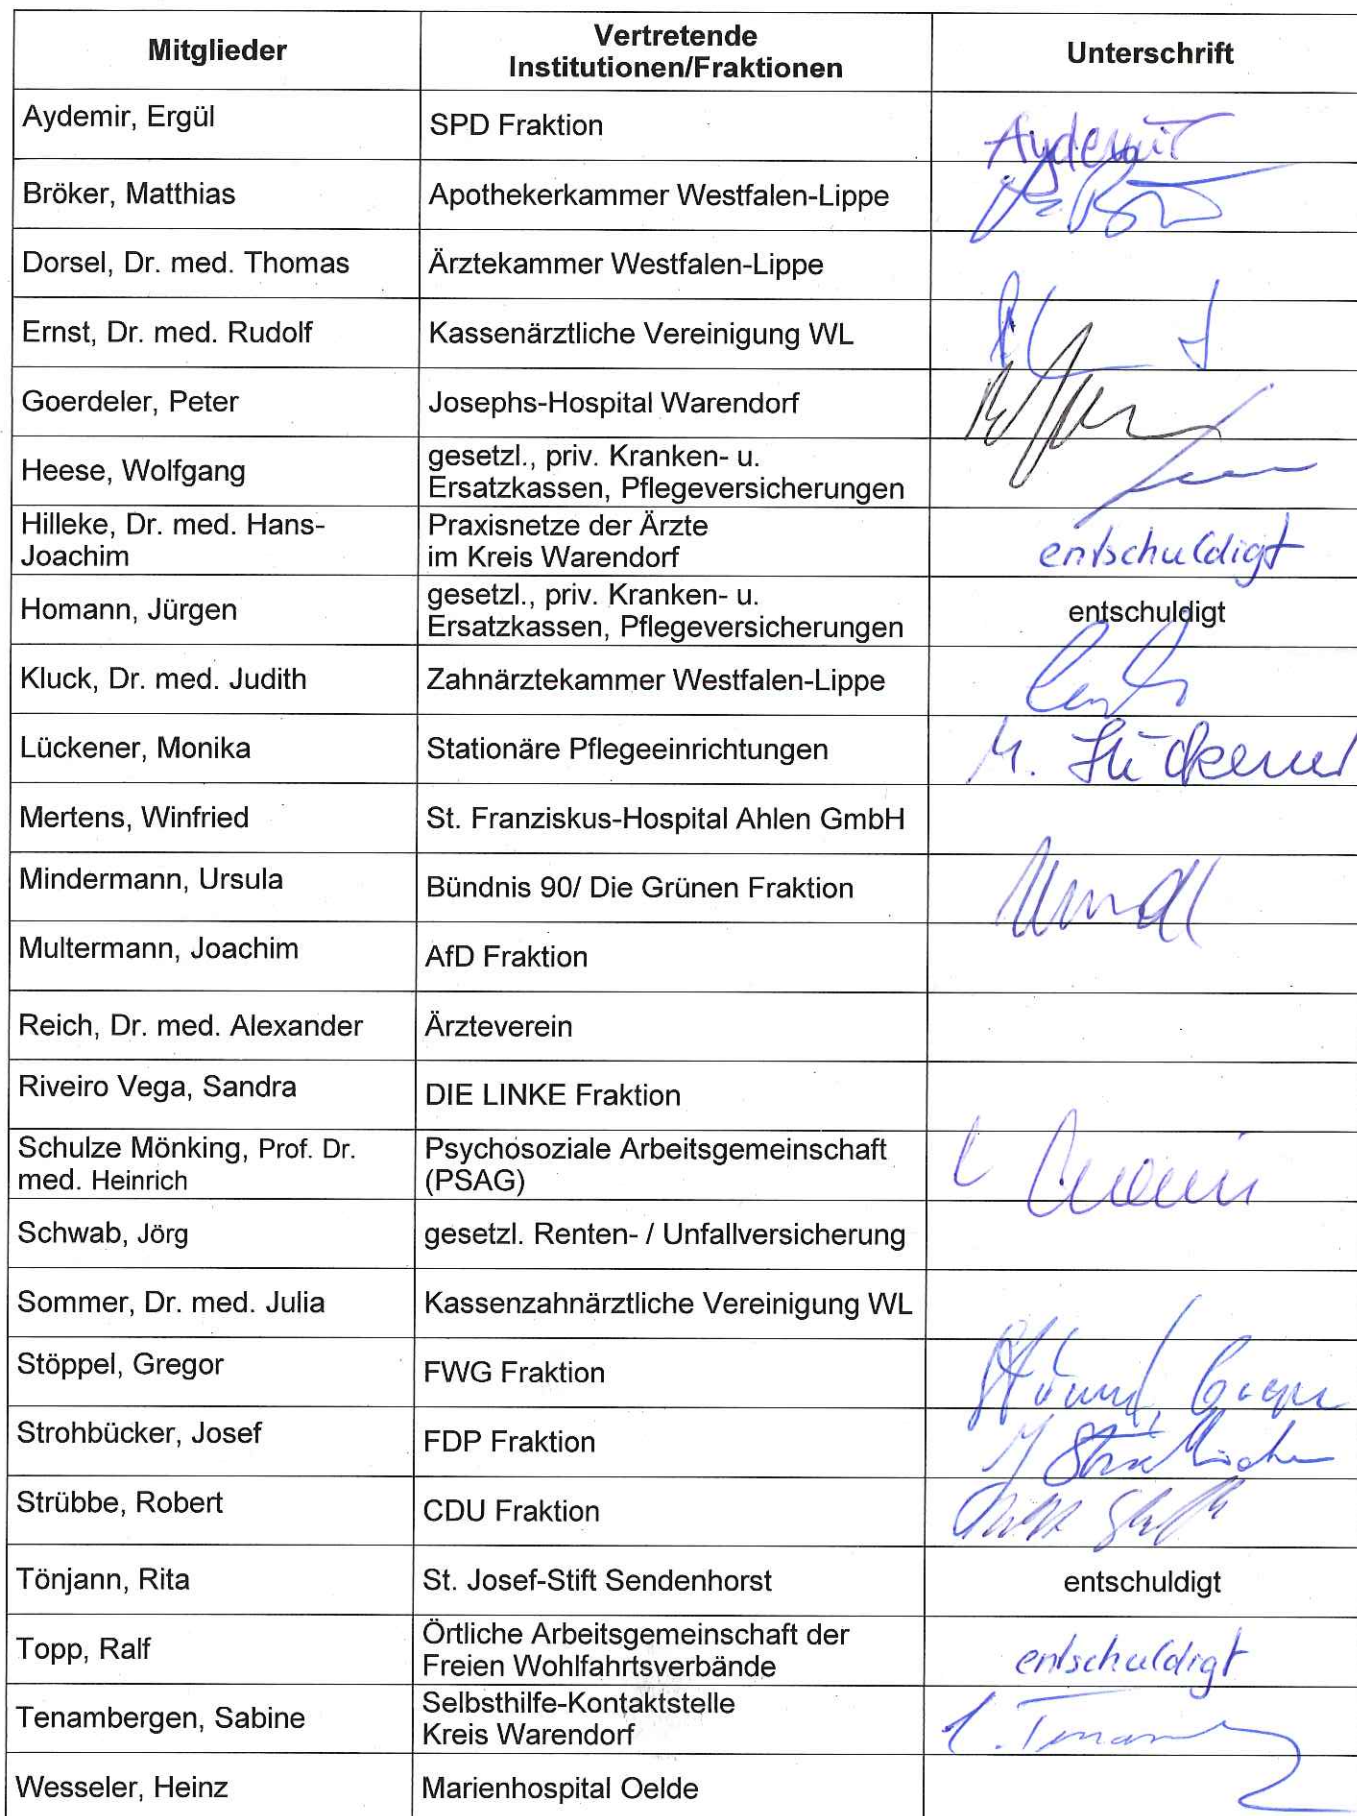 Mitglieder
Vertretende
Institutionen/Fraktionen
Unterschrift
Aydemir, Ergül
SPD Fraktion
Aydemir
Bröker, Matthias
Apothekerkammer Westfalen-Lippe
Dorsel, Dr. med. Thomas
Ärztekammer Westfalen-Lippe
Ernst, Dr. med. Rudolf
Kassenärztliche Vereinigung WL
Goerdeler, Peter
Josephs-Hospital Warendorf
Heese, Wolfgang
gesetzl., priv. Kranken- u.
Ersatzkassen, Pflegeversicherungen
Hilleke, Dr. med. Hans-
Joachim
Praxisnetze der Ärzte
im Kreis Warendorf
entschuldigt
Homann, Jürgen
gesetzl., priv. Kranken- u.
Ersatzkassen, Pflegeversicherungen
entschuldigt
Kluck, Dr. med. Judith
Zahnärztekammer Westfalen-Lippe
Lückener, Monika
Stationäre Pflegeeinrichtungen
M. Lückener
Mertens, Winfried
St. Franziskus-Hospital Ahlen GmbH
Mindermann, Ursula
Bündnis 90/ Die Grünen Fraktion
Multermann, Joachim
AfD Fraktion
Reich, Dr. med. Alexander
Ärzteverein
Riveiro Vega, Sandra
DIE LINKE Fraktion
Schulze Mönking, Prof. Dr.
med. Heinrich
Psychosoziale Arbeitsgemeinschaft
(PSAG)
Schwab, Jörg
gesetzl. Renten- / Unfallversicherung
Sommer, Dr. med. Julia
Kassenzahnärztliche Vereinigung WL
Stöppel, Gregor
FWG Fraktion
Strohbücker, Josef
FDP Fraktion
Strübbe, Robert
CDU Fraktion
Tönjann, Rita
St. Josef-Stift Sendenhorst
entschuldigt
Topp, Ralf
Örtliche Arbeitsgemeinschaft der
Freien Wohlfahrtsverbände
entschuldigt
Tenambergen, Sabine
Selbsthilfe-Kontaktstelle
Kreis Warendorf
Wesseler, Heinz
Marienhospital Oelde